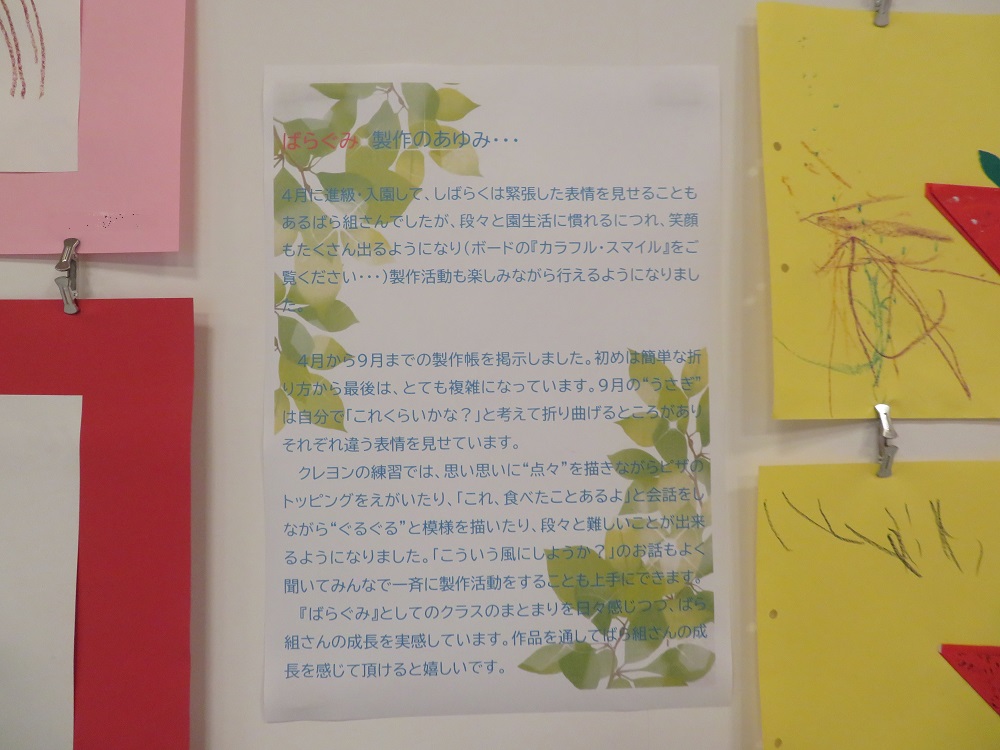 ばらぐみ 製作のあゆみ・・・
4月に進級・入園して、しばらくは緊張した表情を見せることも
あるばら組さんでしたが、段々と園生活に慣れるにつれ、笑顔
もたくさん出るようになり(ボードの『カラフル・スマイル』をご
覧ください・・・)製作活動も楽しみながら行えるようになりまし
た。
4月から9月までの製作帳を掲示しました。初めは簡単な折
り方から最後は、とても複雑になっています。9月の“うさぎ”
は自分で「これくらいかな?」と考えて折り曲げるところがあり
それぞれ違う表情を見せています。
クレヨンの練習では、思い思いに“点々”を描きながらピザの
トッピングをえがいたり、「これ、食べたことあるよ」と会話をし
ながら“ぐるぐる”と模様を描いたり、段々と難しいことが出来
るようになりました。「こういう風にしようか?」のお話もよく
聞いてみんなで一斉に製作活動をすることも上手にできます。
『ばらぐみ』としてのクラスのまとまりを日々感じつつ、ばら
組さんの成長を実感しています。作品を通してばら組さんの成
長を感じて頂けると嬉しいです。